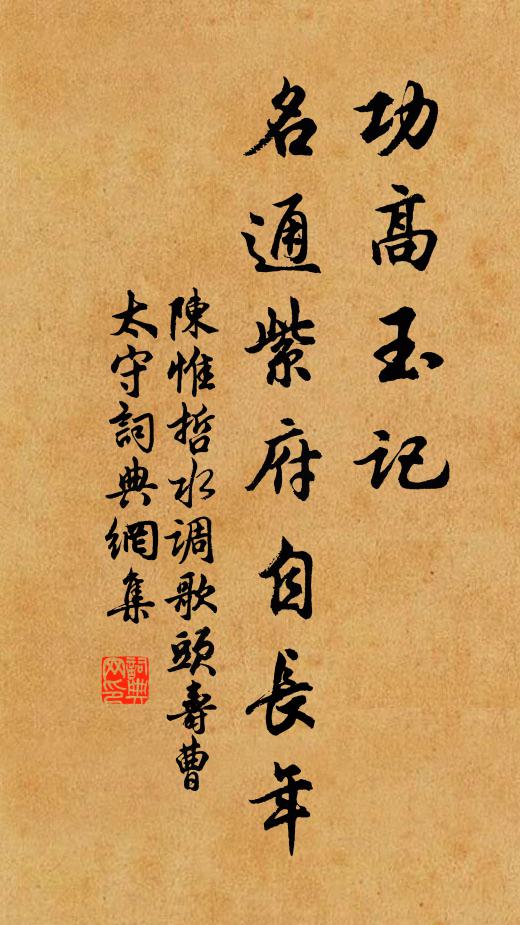 功高玉记
名通紫府自長年
陳惟哲水调歌頭壽曹
太守詞典網集
詞典
网印